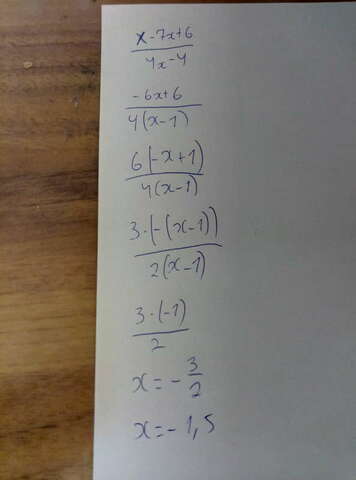 x-7x+6
4x-4
-6x+6
4(x-1)
6(-x+1)
4(x-1)
3·(-(x-1))
2(x-1)
3·(-1)
2
x=-3/2
x=-1,5